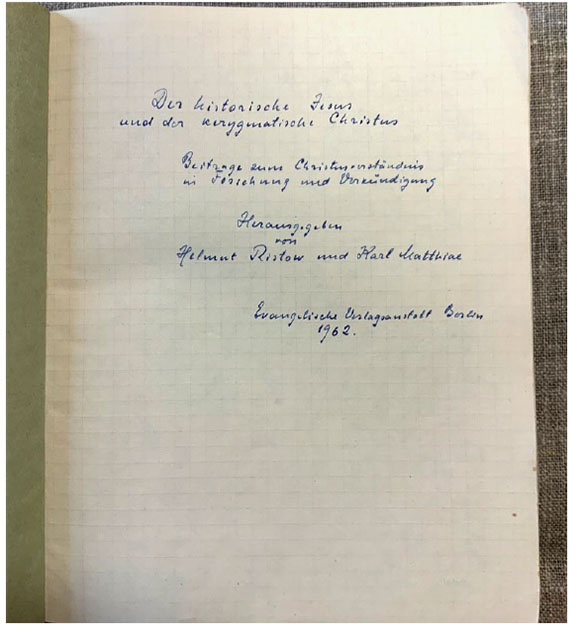 Der historische Jesus
und der kerygmatische Christus
Beiträge zum Christusverständnis
in Forschung und Verkündigung
Herausgegeben
von
Helmut Ristow und Karl Matthiae
Evangelische Verlagsanstalt Berlin
1962.